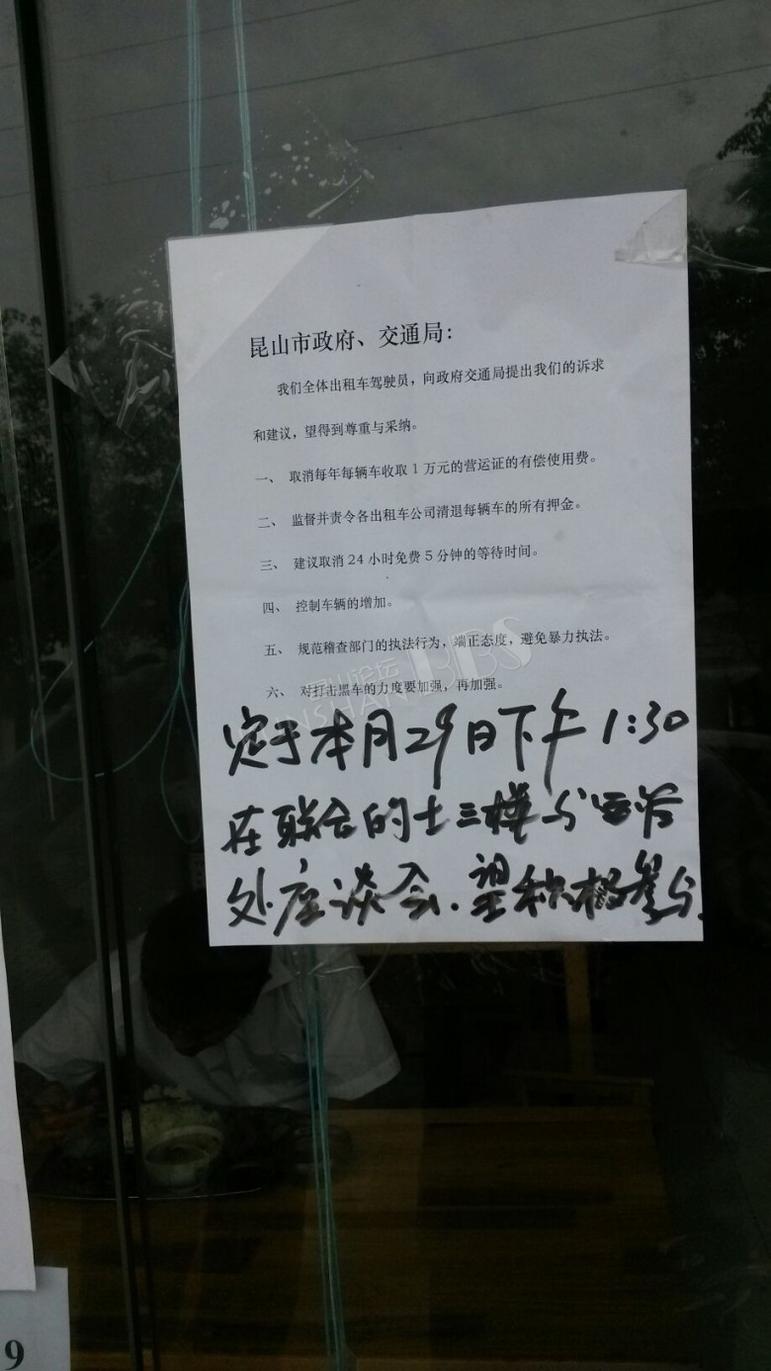 昆山市政府、交通局：
我们全体出租车驾驶员，向政府交通局提出我们的诉求
和建议，望得到尊重与采纳。
一、 取消每年每辆车收取1万元的营运证的有偿使用费。
二、 监督并责令各出租车公司清退每辆车的所有押金。
三、 建议取消24小时免费5分钟的等待时间。
四、 控制车辆的增加。
五、 规范稽查部门的执法行为，端正态度，避免暴力执法。
六、 对打击黑车的力度要加强，再加强。
昆山论坛 BBS
定于本月29日下午1:30
在联合的士三楼与
处座谈会.望积极参与.
9